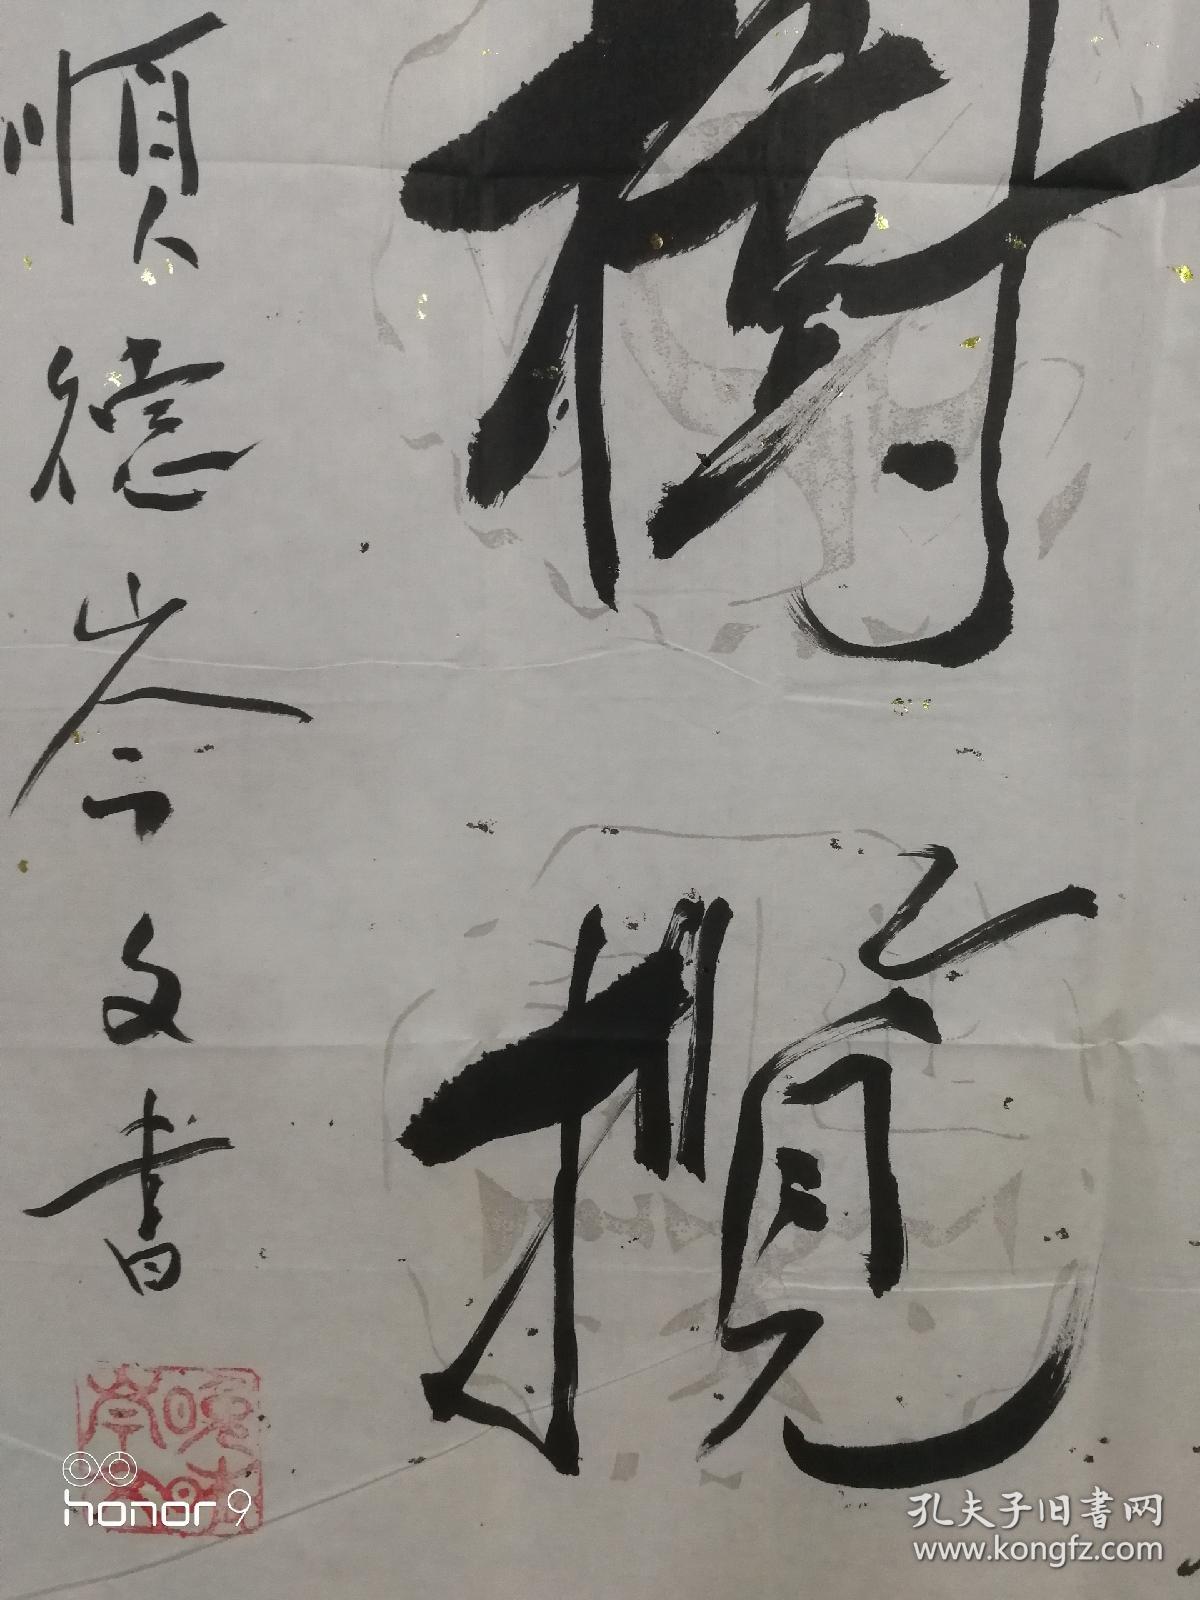 樹
攬
順德岑文書
honor 9
孔夫子旧书网
www.kongfz.com